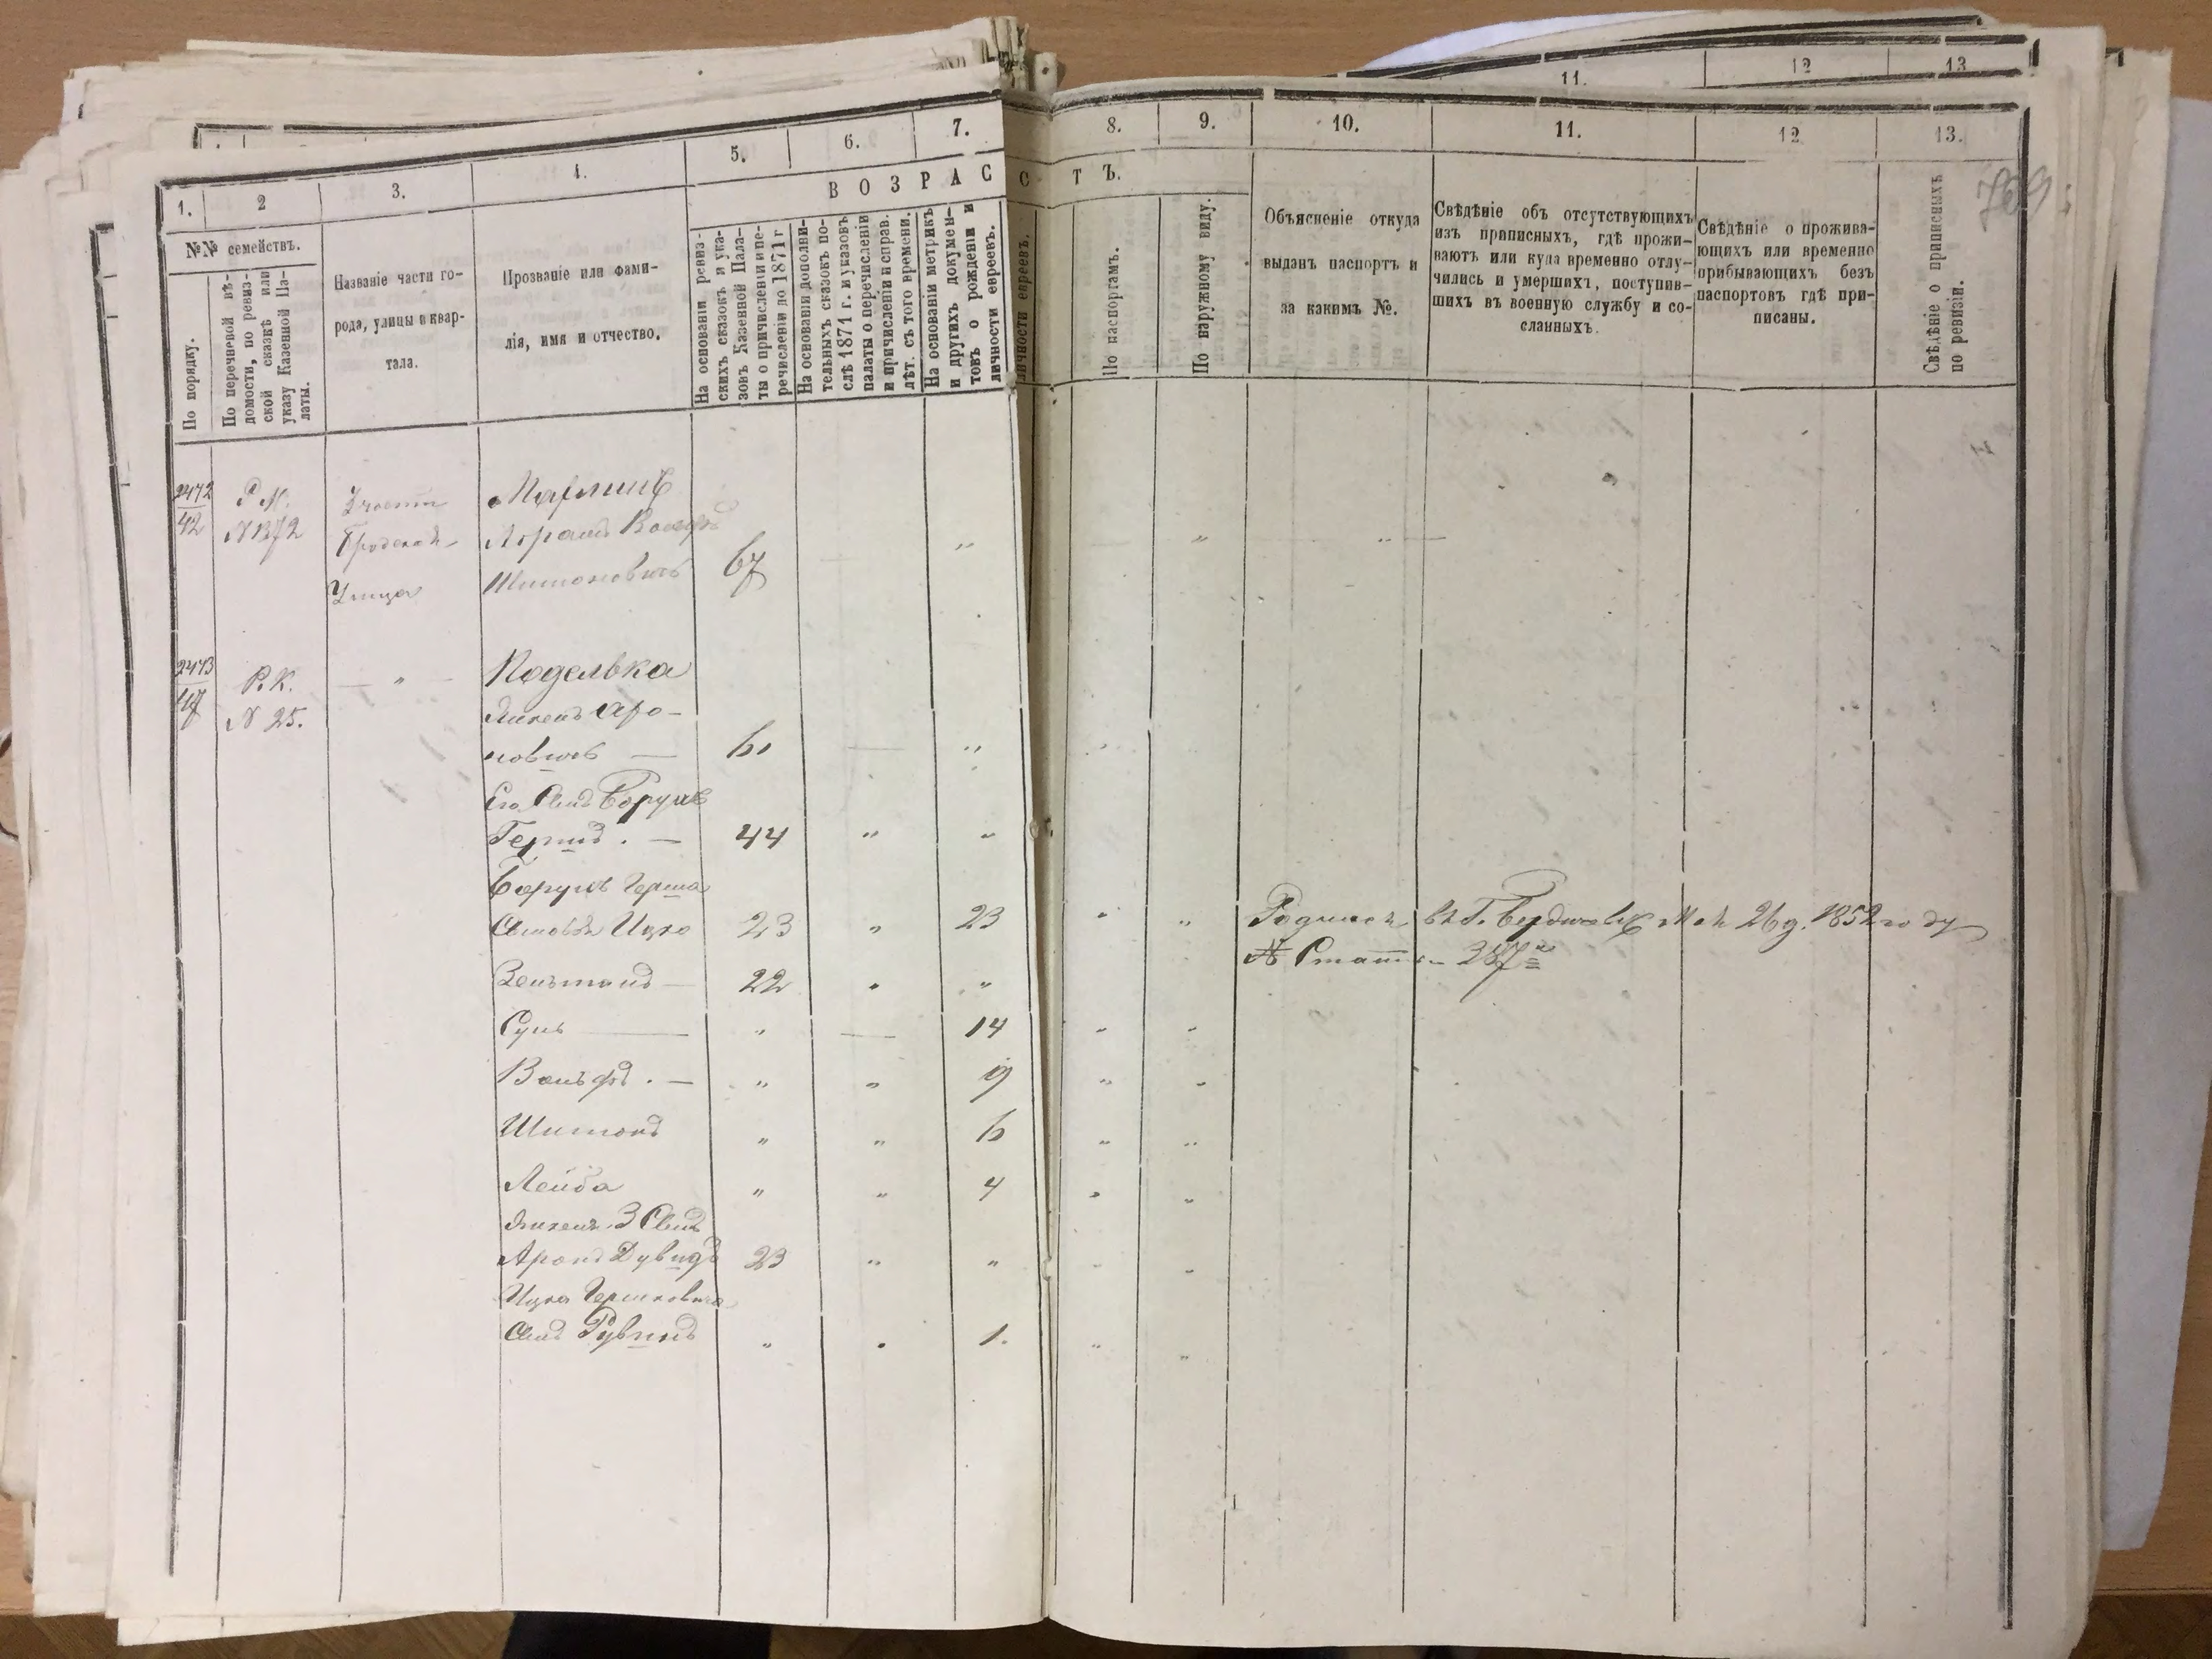 11. 12 13
1. 2 3. 4. 5. 6. 7. 8. 9. 10. 11. 12 13.
769
ВОЗРАСТЪ.
№№ семействъ.
По порядку.
По перечневой вѣ-
домости, по ревиз-
ской сказкѣ или
указу Казенной Па-
латы.
Названіе части го-
рода, улицы и квар-
тала.
Прозваніе или фами-
лія, имя и отчество.
На основаніи ревиз-
скихъ сказокъ и ука-
зовъ Казенной Пала-
ты о причисленіи и пе-
речисленіи до 1871 г
На основаніи дополни-
тельныхъ сказокъ по-
слѣ 1871 г. и указовъ
палаты о перечисленіи
и причисленіи и справ.
лѣт. съ того времени.
На основаніи метрикъ
и другихъ докумен-
товъ о рожденіи и
личности евреевъ.
личности евреевъ.
По паспортамъ.
По наружному виду.
Объясненіе откуда
выданъ паспортъ и
за какимъ №.
Свѣдѣніе объ отсутствующихъ
изъ приписныхъ, гдѣ прожи-
ваютъ или куда временно отлу-
чились и умершихъ, поступив-
шихъ въ военную службу и со-
сланныхъ.
Свѣдѣніе о прожива-
ющихъ или временно
прибывающихъ безъ
паспортовъ гдѣ при-
писаны.
Свѣдѣніе о приписныхъ
по ревизіи.
2472 Р. М.
42 N 1372
Улица Шимоновичъ 67
2473 Р. К. " Поделька
47 N 25. Янкель Аро-
новичъ — 61 — "
Его Сынъ Борухъ
Гершъ . — 44 " "
Борухъ Герша
Сыновья Ицко 23 " 23 " " Родился въ Г. Бердичевѣ Мая 26 д. 1852 году
№ Статьи 287
Зельманъ — 22 " "
Суль — " — 14 " "
Вольфъ . — " " 9 " "
Шимонъ " " 6 " "
Лейба " " 4 " "
Янкеля 3 Сынъ
Аронъ Дувидъ 23 " " " "
Ицка Гершковича
Сынъ Рувинъ " " 1. " "